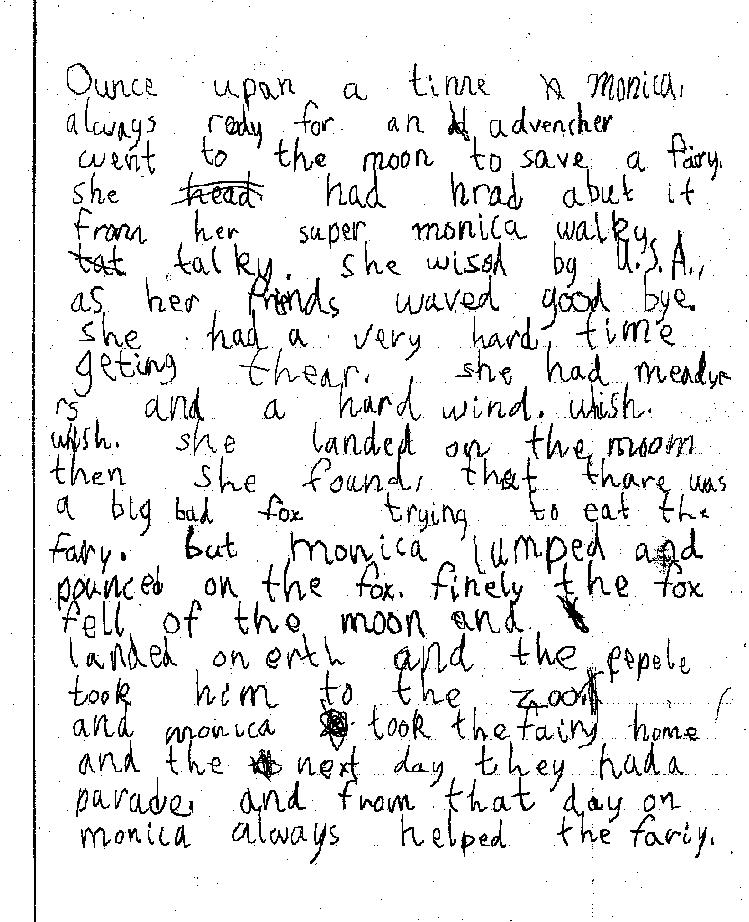 Ounce upon a time monica,
always redy for an advencher
went to the moon to save a fairy.
she head had hrad abut it
from her super monica walky
tat talky. she wisod by U.S.A.,
as her frinds waved good bye.
she had a very hard time
geting thear. she had meadye
rs and a hard wind. whish.
whish. she landed on the moom
then she found, that thare was
a big bad fox trying to eat the
fairy. but monica jumped and
pounced on the fox. finely the fox
fell of the moon and
landed on erth and the pepele
took him to the zoo
and monica took the fairy home
and the next day they had a
parade, and from that day on
monica always helped the fariy.